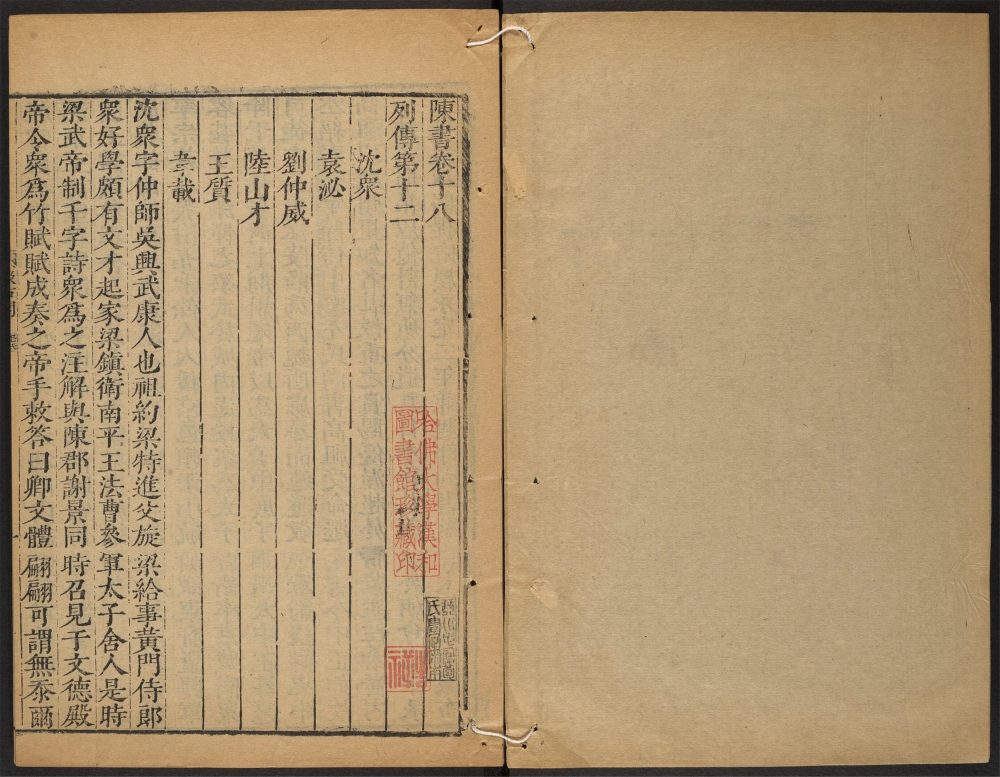 陳書卷十八
列傳第十二
沈衆
袁泌
劉仲威
陸山才
王質
韋載
沈衆字仲師吳興武康人也祖約梁特進父旋梁給事黃門侍郎
衆好學頗有文才起家梁鎮衛南平王法曹參軍太子舍人是時
梁武帝制千字詩衆爲之注解與陳郡謝景同時召見于文德殿
帝令衆爲竹賦賦成奏之帝手敕答曰卿文體翩翩可謂無忝爾
哈佛大學漢和
圖書館珍藏印